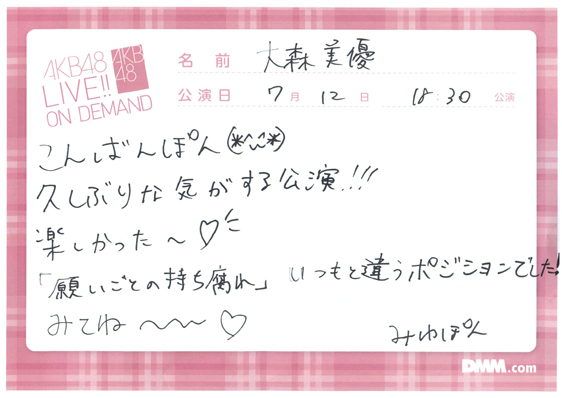 AKB48
LIVE!!
ON DEMAND
AKB
48
名前 大森美優
公演日 7月12日 18:30 公演
こんばんぽん(*^^*)
久しぶりな気がする公演!!!
楽しかった〜♡
「願いごとの持ち腐れ」 いつもと違うポジションでした!
みてね〜〜♡
みゆぽん
DMM.com